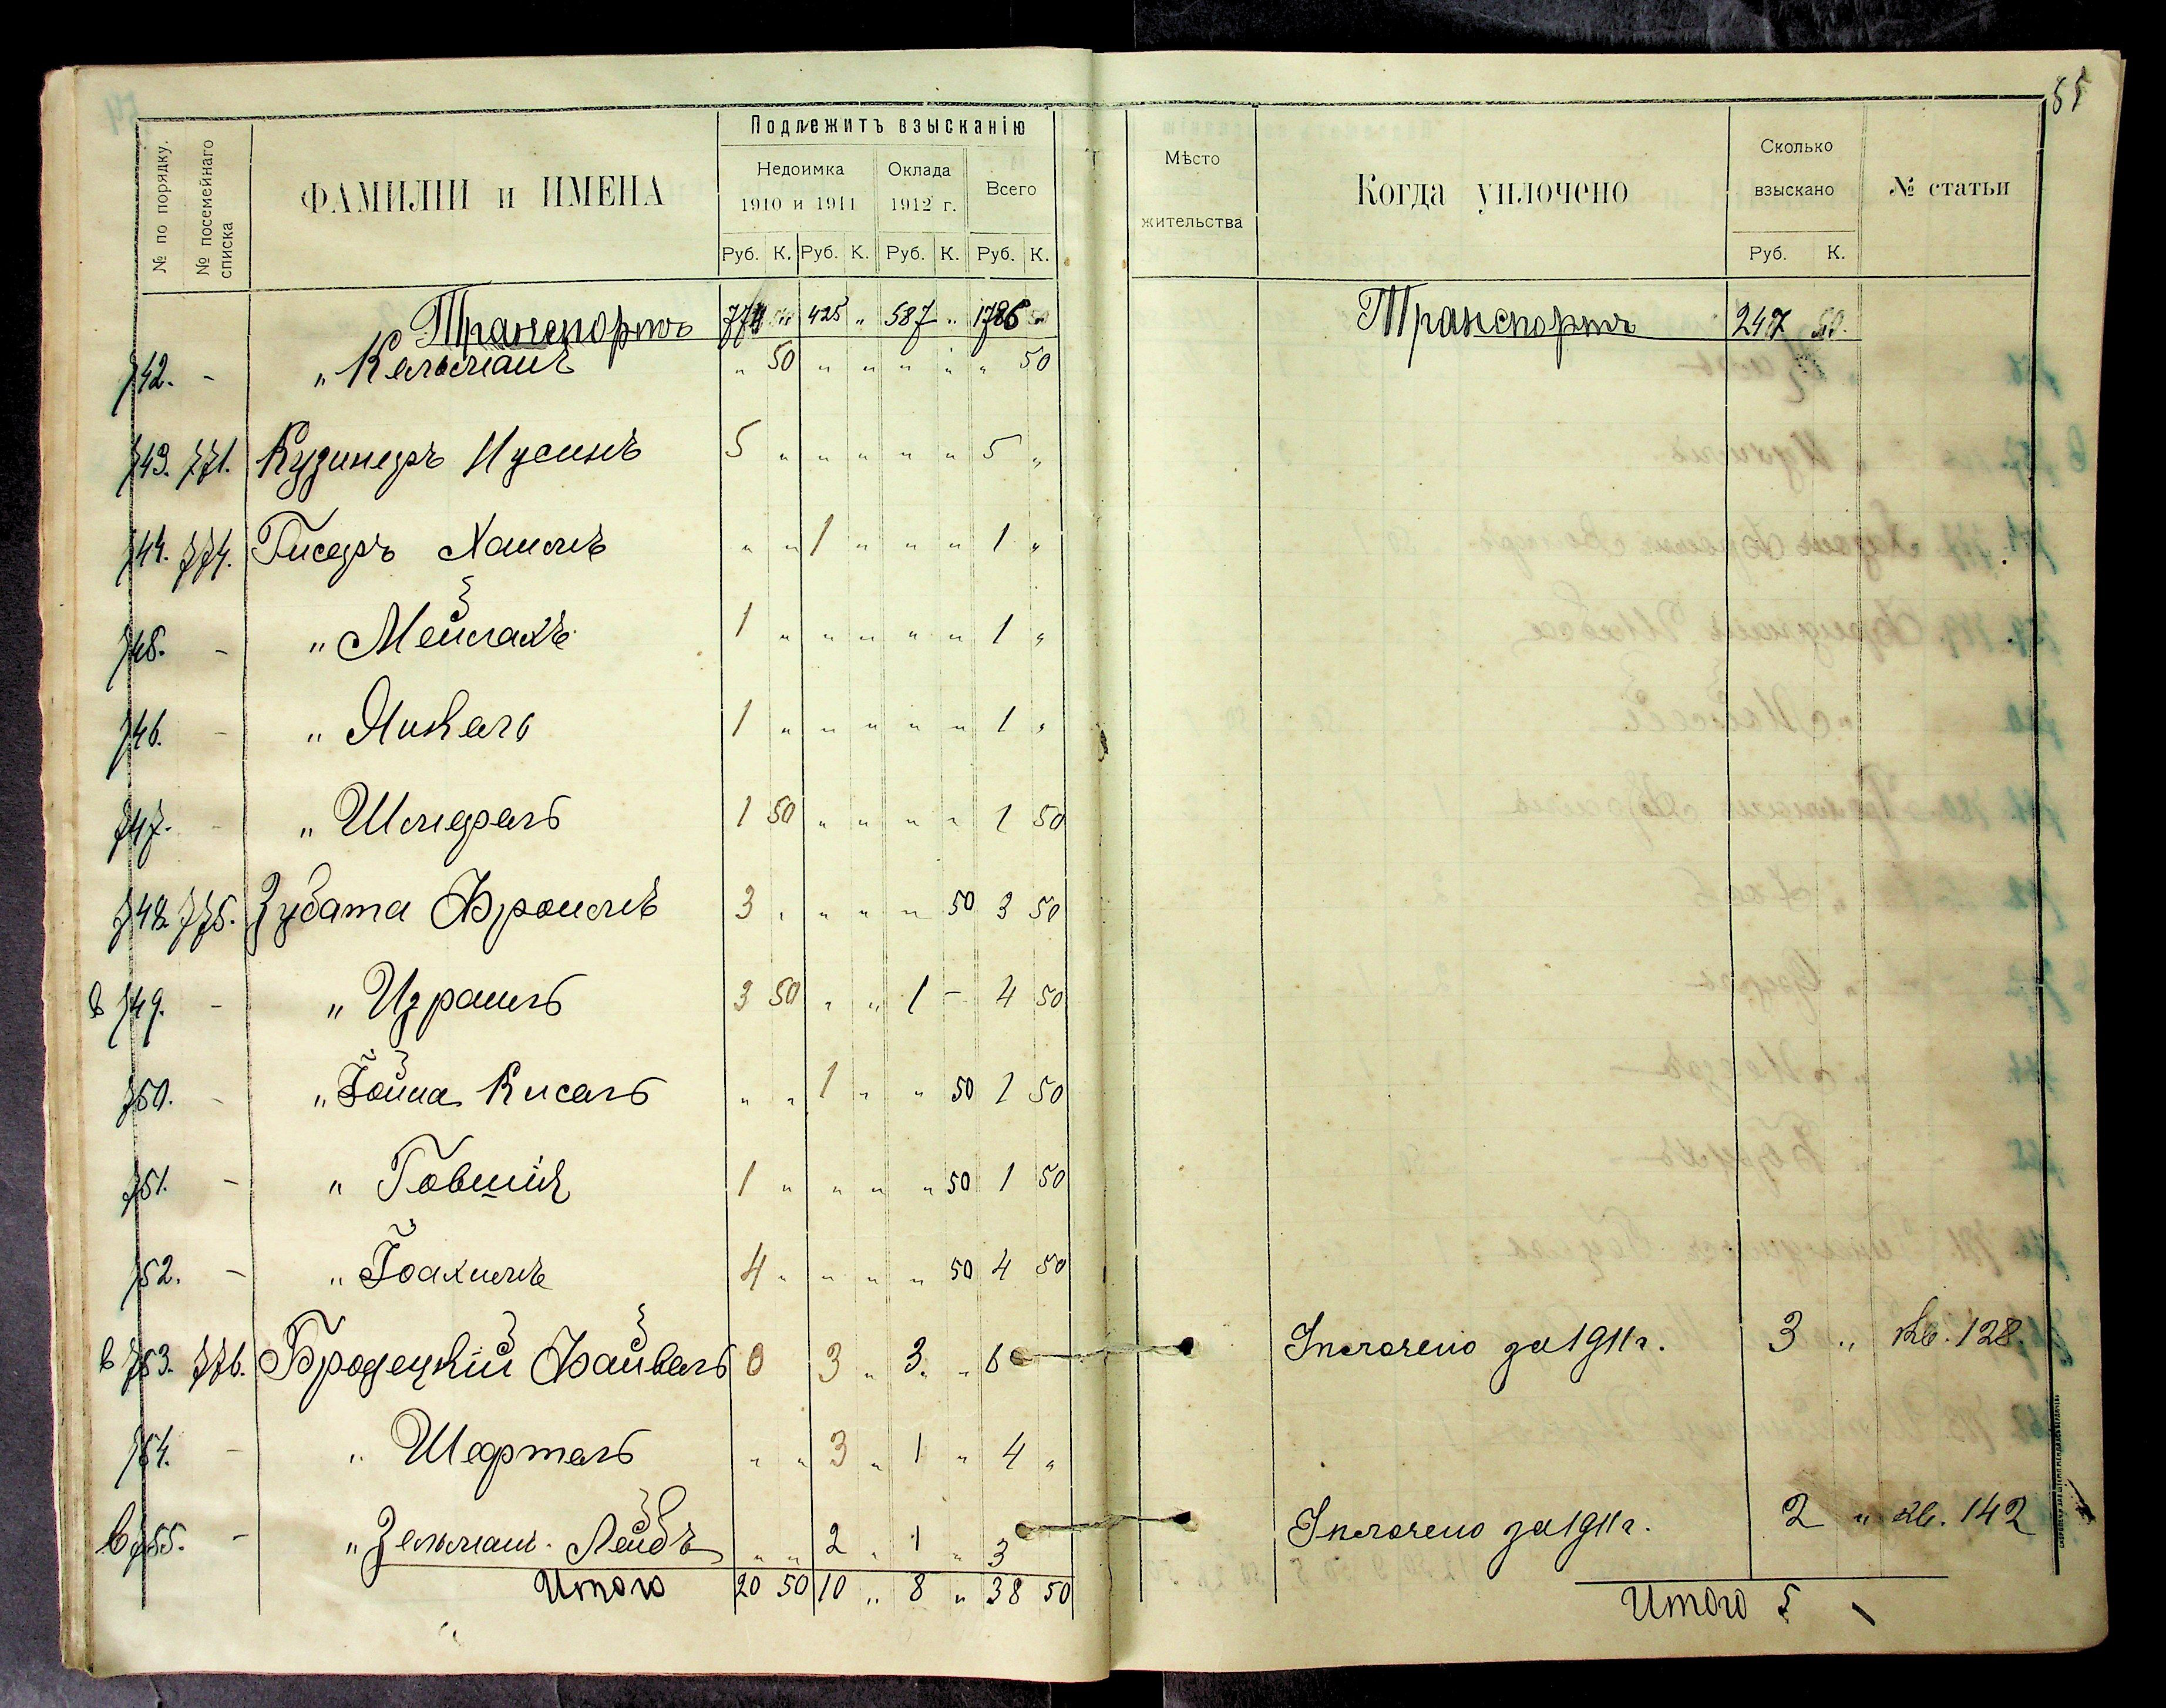 85
№ по порядку.
№ посемейнаго списка
ФАМИЛІИ и ИМЕНА
Подлежитъ взысканію
Недоимка
1910 и 1911
Оклада
1912 г.
Всего
Руб. К. Руб. К. Руб. К. Руб. К.
Мѣсто
жительства
Когда уплочено
Сколько
взыскано
Руб. К.
№ статьи
Транспортъ 774 " 425 " 587 " 1786 Транспортъ 247 50.
742. - " Кельманъ " 50 " " " " " 50
743. 771. Кузинеръ Нусинъ 5 " " " " " 5 "
744. 774. Гисеръ Хаимъ " " 1 " " " 1 "
745. - " Мейлахъ 1 " " " " " 1 "
746. - " Янкель 1 " " " " " 1 "
747. - " Шмерель 1 50 " " " " 1 50
748. 775. Зубата Фроимъ 3 " " " " 50 3 50
в 749. - " Израиль 3 50 " " 1 - 4 50
750. - " Іойна Кисель " " 1 " " 50 1 50
751. - " Говшій 1 " " " " 50 1 50
752. - " Іоахимъ 4 " " " " 50 4 50
в 753. 776. Бродецкій Файвель 0 3 " 3 " 6 Уплочено за 1911 г. 3 " кв. 128.
754. - " Шефтель " " 3 " 1 " 4 "
в 755. - " Зельманъ Лейбъ " " 2 " 1 " 3 Уплочено за 1911 г. 2 " кв. 142
Итого 20 50 10 " 8 " 38 50 Итого 5